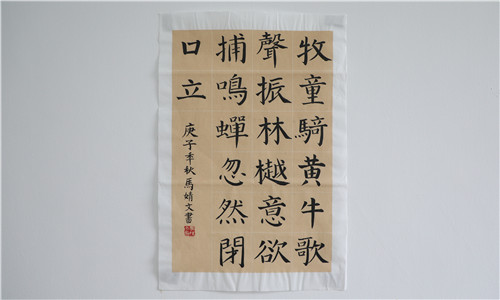 牧童騎黃牛歌
聲振林樾意欲
捕鳴蟬忽然閉
口立
庚子年秋馬婧文書